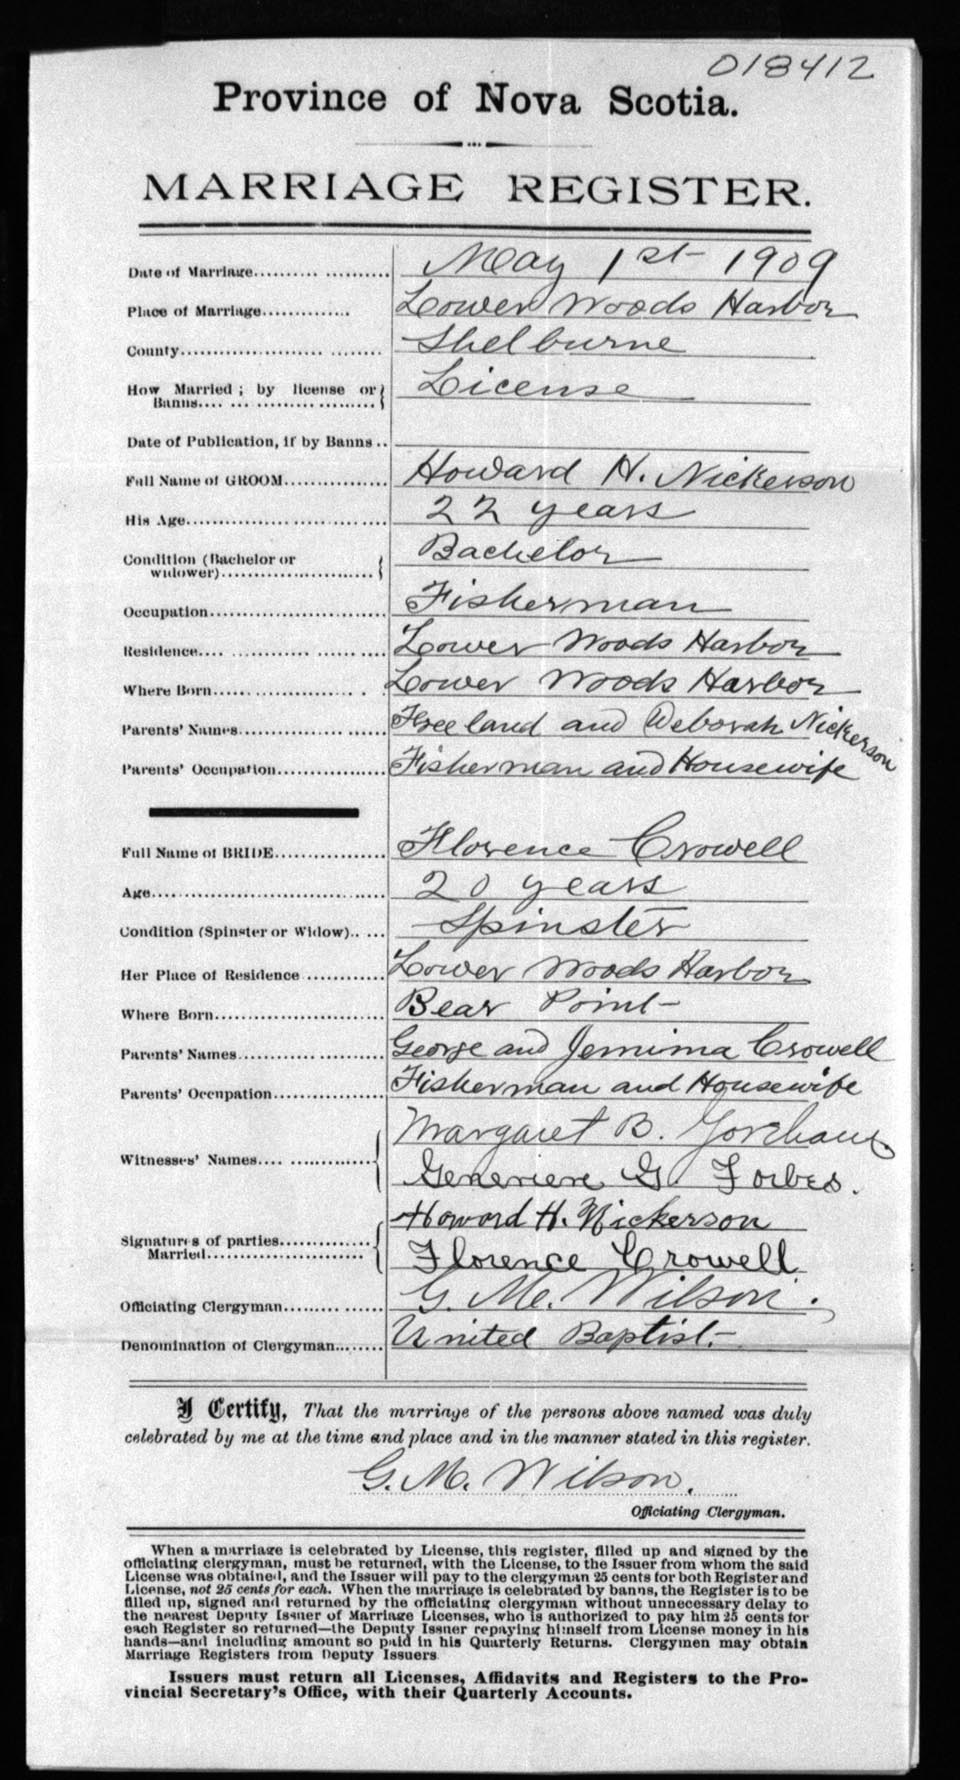 018412
Province of Nova Scotia.
MARRIAGE REGISTER.
Date of Marriage.......... ........... May 1st 1909
Place of Marriage.............. Lower Woods Harbor
County....................... ......... Shelburne
How Married ; by license or
Banns.... ... .................. License
Date of Publication, if by Banns ..
Full Name of GROOM................ Howard H. Nickerson
His Age............................... 22 years
Condition (Bachelor or
widower)........................ Bachelor
Occupation........................... Fisherman
Residence.... ............. ...... ... Lower Woods Harbor
Where Born...................... . Lower Woods Harbor
Parents' Names...................... Freeland and Deborah Nickerson
Parents' Occupation................. Fisherman and Housewife
Full Name of BRIDE................. Florence Crowell
Age................................... 20 years
Condition (Spinster or Widow).. .... Spinster
Her Place of Residence ............ Lower Woods Harbor
Where Born.......................... Bear Point
Parents' Names...................... George and Jemima Crowell
Parents' Occupation................. Fisherman and Housewife
Margaret B. Goreham
Witnesses' Names.... ............... Genevieve G. Forbes.
Howard H. Nickerson
Signatures of parties..............
Married........................ Florence Crowell
Officiating Clergyman......... ...... G. Mc. Wilson.
Denomination of Clergyman.......... United Baptist.
I Certify, That the marriage of the persons above named was duly
celebrated by me at the time and place and in the manner stated in this register.
G. M. Wilson.
Officiating Clergyman.
When a marriage is celebrated by License, this register, filled up and signed by the
officiating clergyman, must be returned, with the License, to the Issuer from whom the said
License was obtained, and the Issuer will pay to the clergyman 25 cents for both Register and
License, not 25 cents for each. When the marriage is celebrated by banns, the Register is to be
filled up, signed and returned by the officiating clergyman without unnecessary delay to
the nearest Deputy Issuer of Marriage Licenses, who is authorized to pay him 25 cents for
each Register so returned—the Deputy Issuer repaying himself from License money in his
hands—and including amount so paid in his Quarterly Returns. Clergymen may obtain
Marriage Registers from Deputy Issuers
Issuers must return all Licenses, Affidavits and Registers to the Pro-
vincial Secretary's Office, with their Quarterly Accounts.